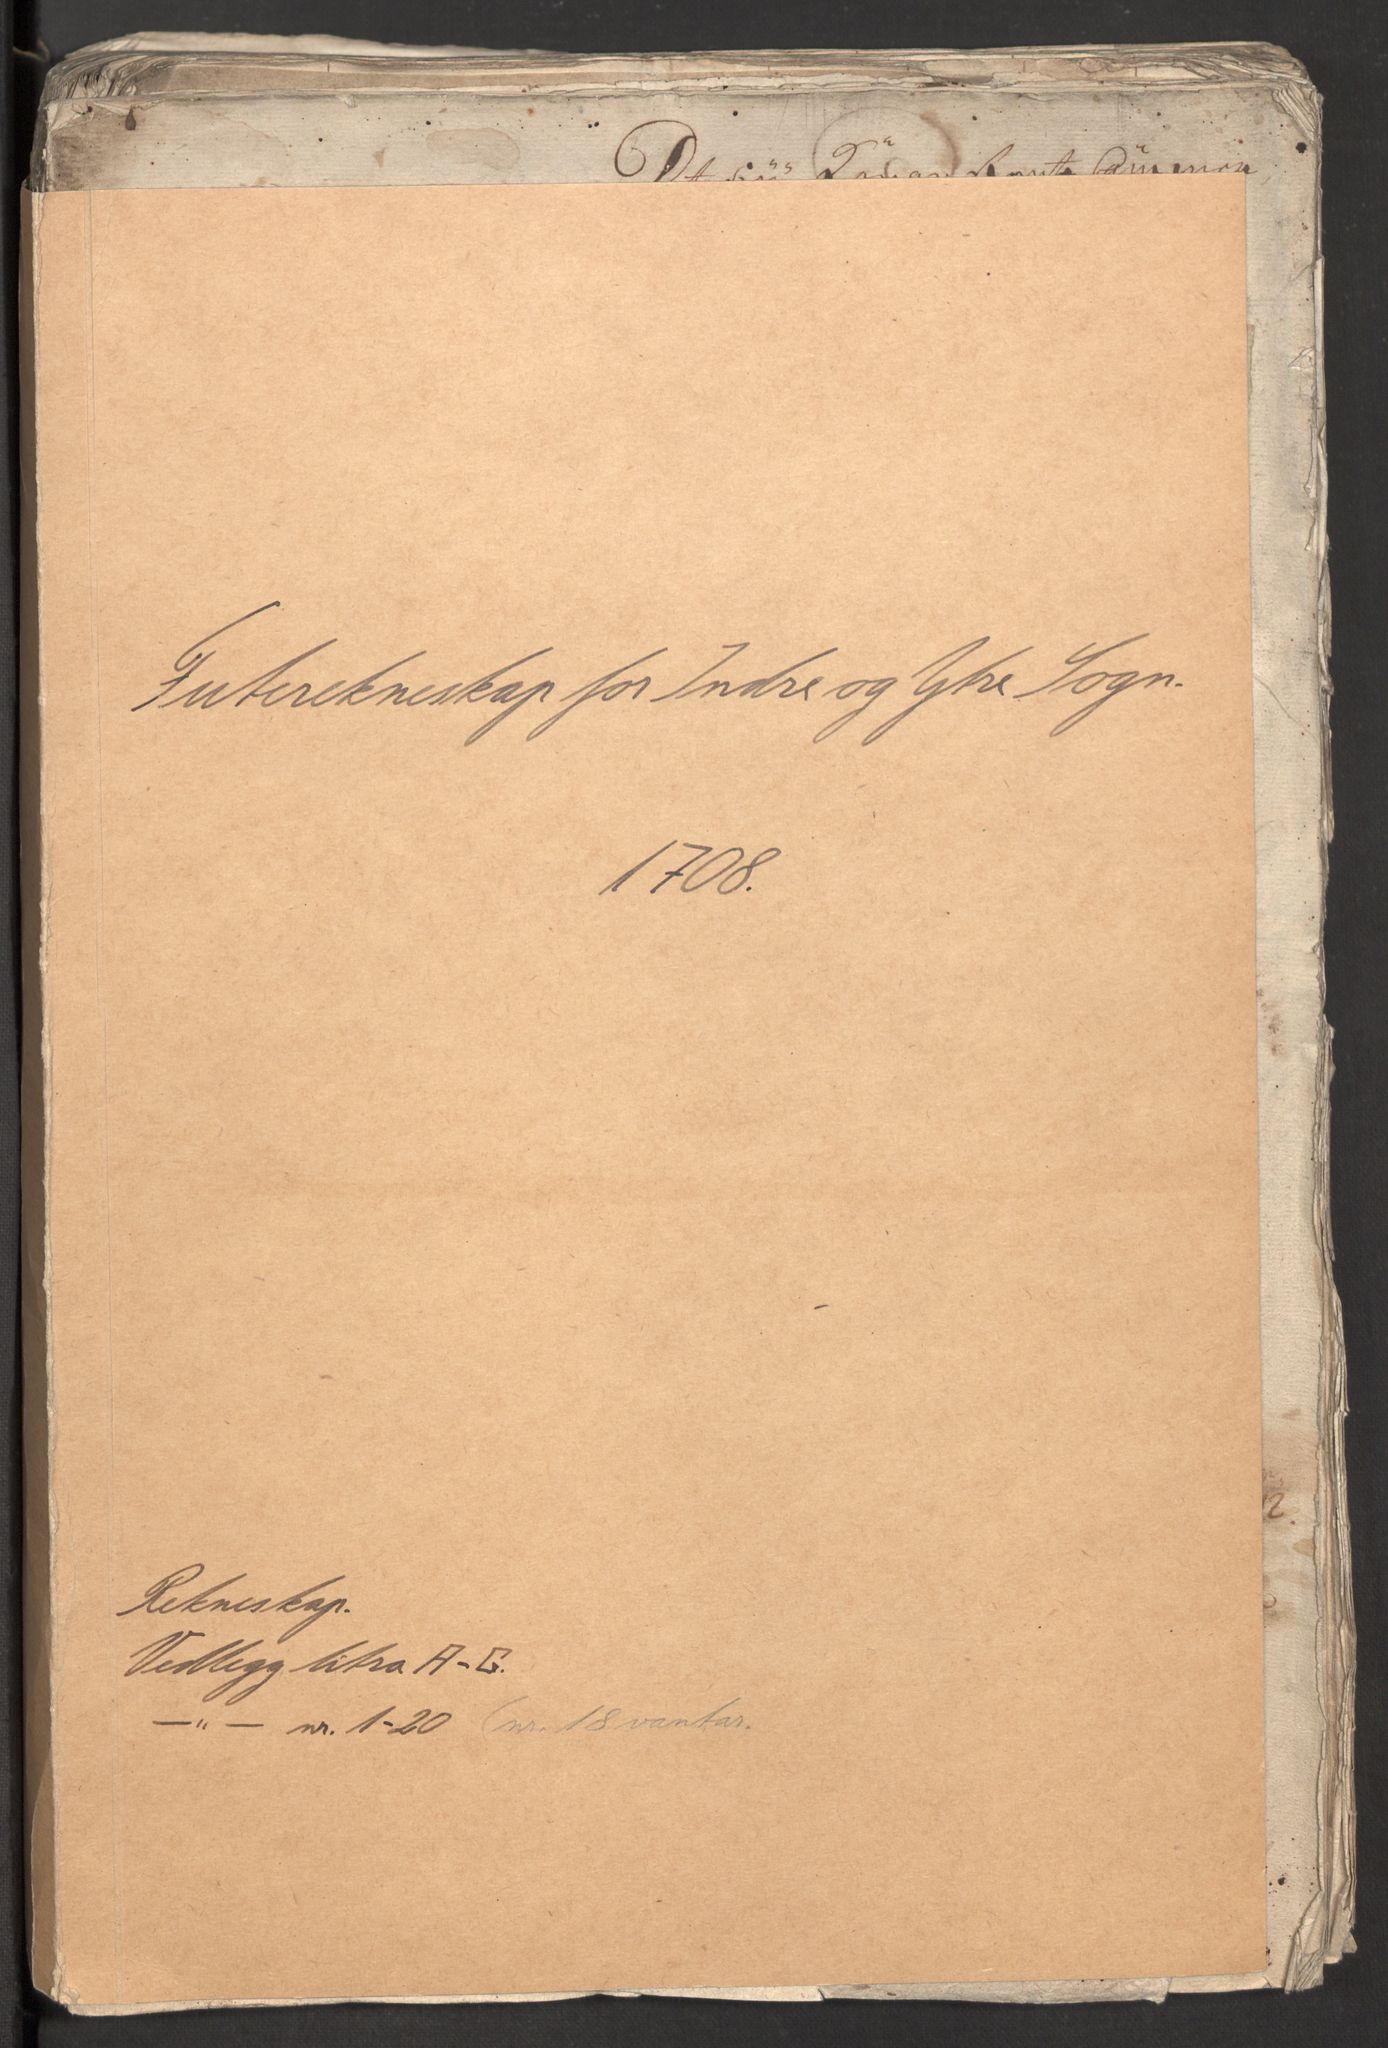 Futerekneskap for Indre og Ytre Sogn.
1708.
Rekneskap.
Vedlegg litra A-G.
—"— nr. 1-20 (nr. 18 vantar.
2.